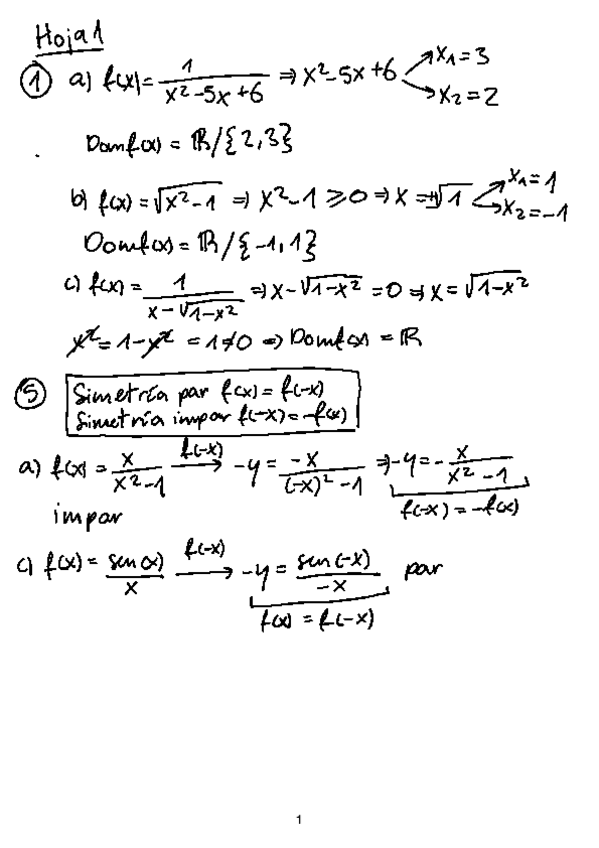 Hoja 1
① a) f(x) = 1/(x²-5x+6) ⇒ x²-5x+6 ↗ x₁=3 ↘ x₂=2
Domf(x) = ℝ/{2,3}
b) f(x) = √(x²-1) ⇒ x²-1 ≥ 0 ⇒ x = ±√1 ↗ x₁=1 ↘ x₂=-1
Domf(x) = ℝ/{-1,1}
c) f(x) = 1/(x-√(1-x²)) ⇒ x-√(1-x²) = 0 ⇒ x = √(1-x²)
x² = 1-x² = 1≠0 ⇒ Domf(x) = ℝ
⑤ Simetría par f(x) = f(-x)
Simetría impar f(-x) = -f(x)
a) f(x) = x/(x²-1) f(-x)→ -y = -x/((-x)²-1) ⇒ -y = -x/(x²-1)
impar f(-x) = -f(x)
c) f(x) = sen(x)/x f(-x)→ -y = sen(-x)/-x par
f(x) = f(-x)
1